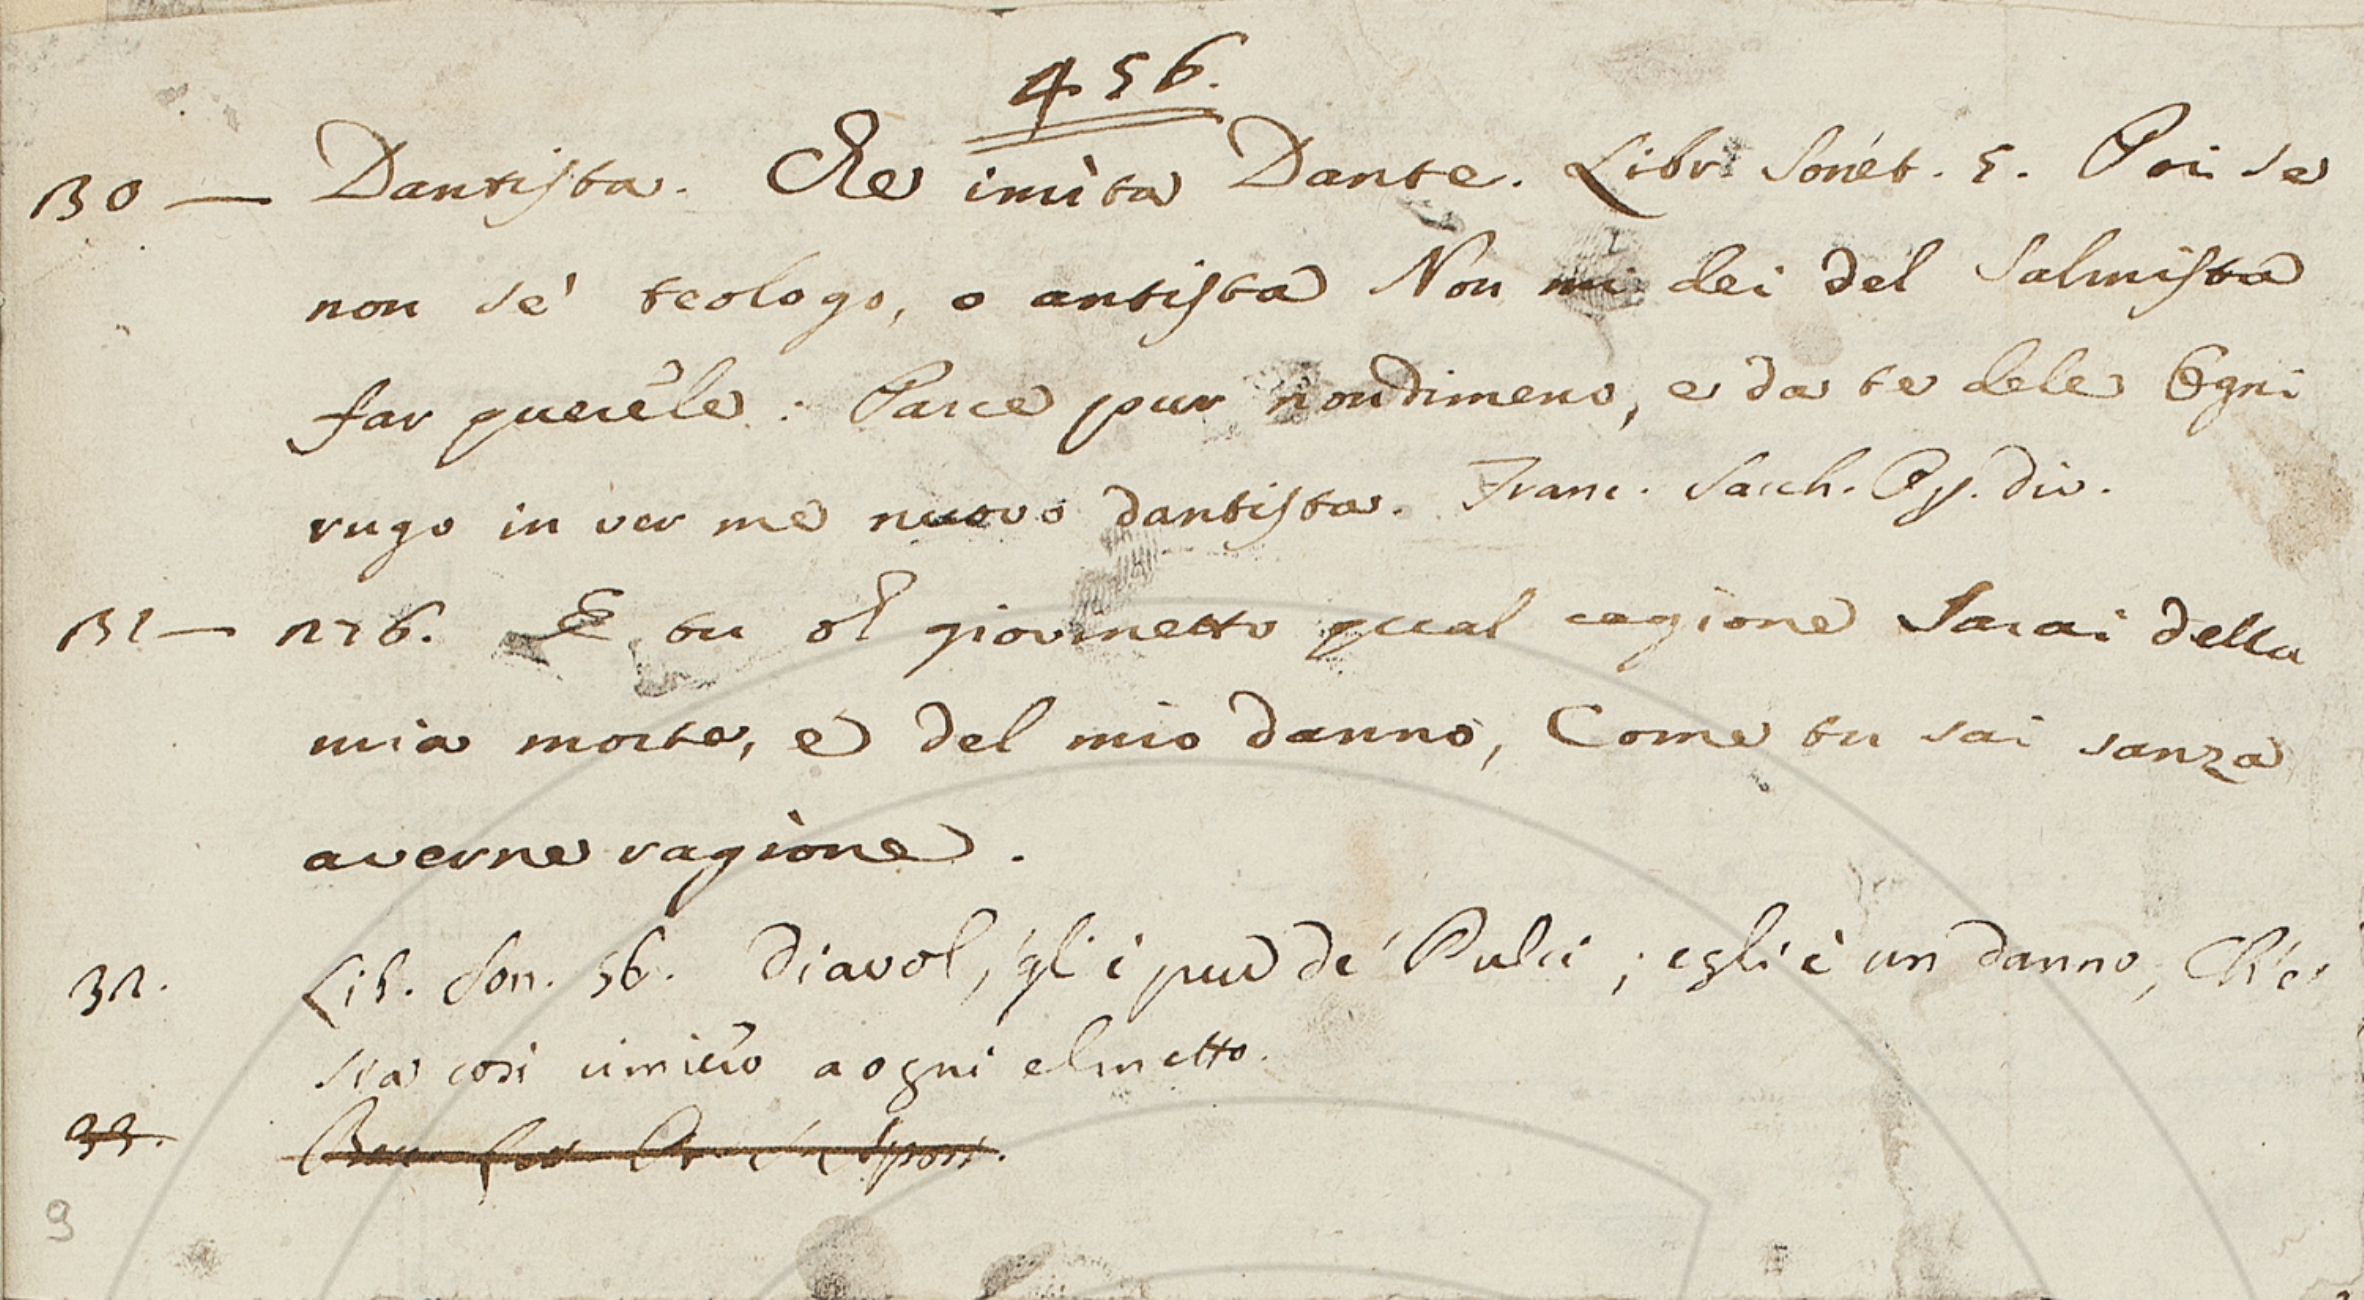 456.
130 — Dantista. Che imita Dante. Libr. Sonet. 5. Poi se
non se' teologo, o artista Non mi dei del Salmista
far querele: Parce pur nondimeno, e da te dele Ogni
rugo in ver me nuovo dantista. Franc. Sacch. Op. div.
131 — 126. E tu oh giovinetto qual cagione Sarai della
mia morte, e del mio danno, Come tu sai sanza
averne ragione.
32. Lib. Son. 56. Diavol, 'gli è pur de' Pulci; egli è un danno, Ch'e'
sia così nimico a ogni elmetto.
33.
9